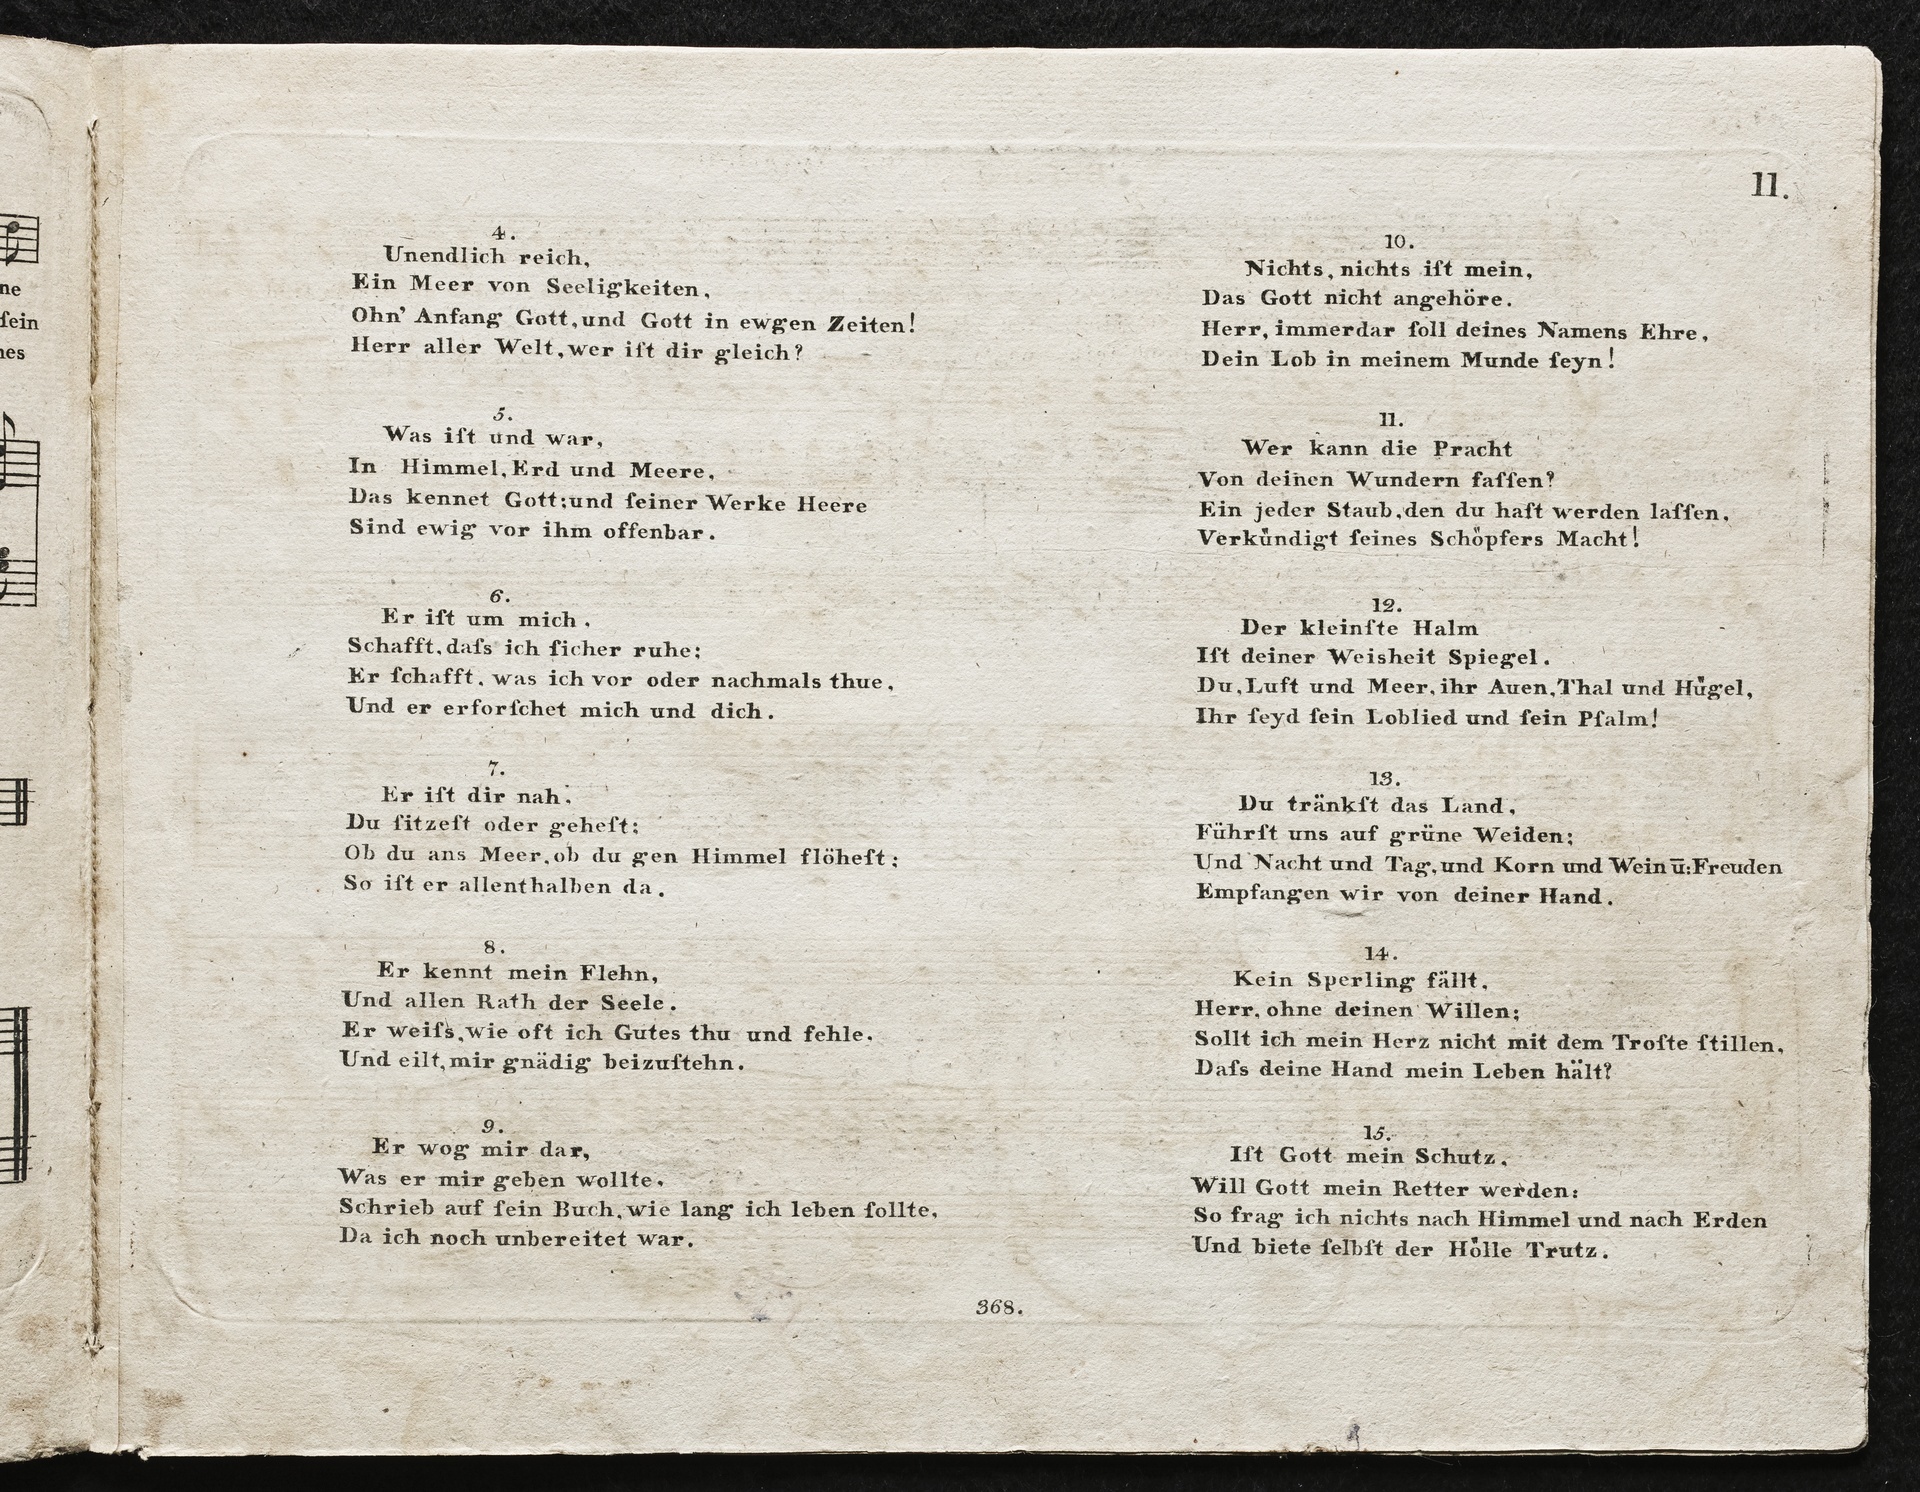 ne
ſein
nes
11.
4.
Unendlich reich,
Ein Meer von Seeligkeiten,
Ohn' Anfang Gott, und Gott in ewgen Zeiten!
Herr aller Welt, wer iſt dir gleich?
5.
Was iſt und war,
In Himmel, Erd und Meere,
Das kennet Gott; und ſeiner Werke Heere
Sind ewig vor ihm offenbar.
6.
Er iſt um mich,
Schafft, daſs ich ſicher ruhe;
Er ſchafft, was ich vor oder nachmals thue,
Und er erforſchet mich und dich.
7.
Er iſt dir nah,
Du ſitzeſt oder geheſt;
Ob du ans Meer, ob du gen Himmel flöheſt;
So iſt er allenthalben da.
8.
Er kennt mein Flehn,
Und allen Rath der Seele.
Er weiſs, wie oft ich Gutes thu und fehle,
Und eilt, mir gnädig beizuſtehn.
9.
Er wog mir dar,
Was er mir geben wollte,
Schrieb auf ſein Buch, wie lang ich leben ſollte,
Da ich noch unbereitet war.
10.
Nichts, nichts iſt mein,
Das Gott nicht angehöre.
Herr, immerdar ſoll deines Namens Ehre,
Dein Lob in meinem Munde ſeyn!
11.
Wer kann die Pracht
Von deinen Wundern faſſen?
Ein jeder Staub, den du haſt werden laſſen,
Verkündigt ſeines Schöpfers Macht!
12.
Der kleinſte Halm
Iſt deiner Weisheit Spiegel.
Du, Luft und Meer, ihr Auen, Thal und Hügel,
Ihr ſeyd ſein Loblied und ſein Pſalm!
13.
Du tränkſt das Land,
Führſt uns auf grüne Weiden;
Und Nacht und Tag, und Korn und Wein ū: Freuden
Empfangen wir von deiner Hand.
14.
Kein Sperling fällt,
Herr, ohne deinen Willen;
Sollt ich mein Herz nicht mit dem Troſte ſtillen,
Daſs deine Hand mein Leben hält?
15.
Iſt Gott mein Schutz,
Will Gott mein Retter werden:
So frag ich nichts nach Himmel und nach Erden
Und biete ſelbſt der Hölle Trutz.
368.